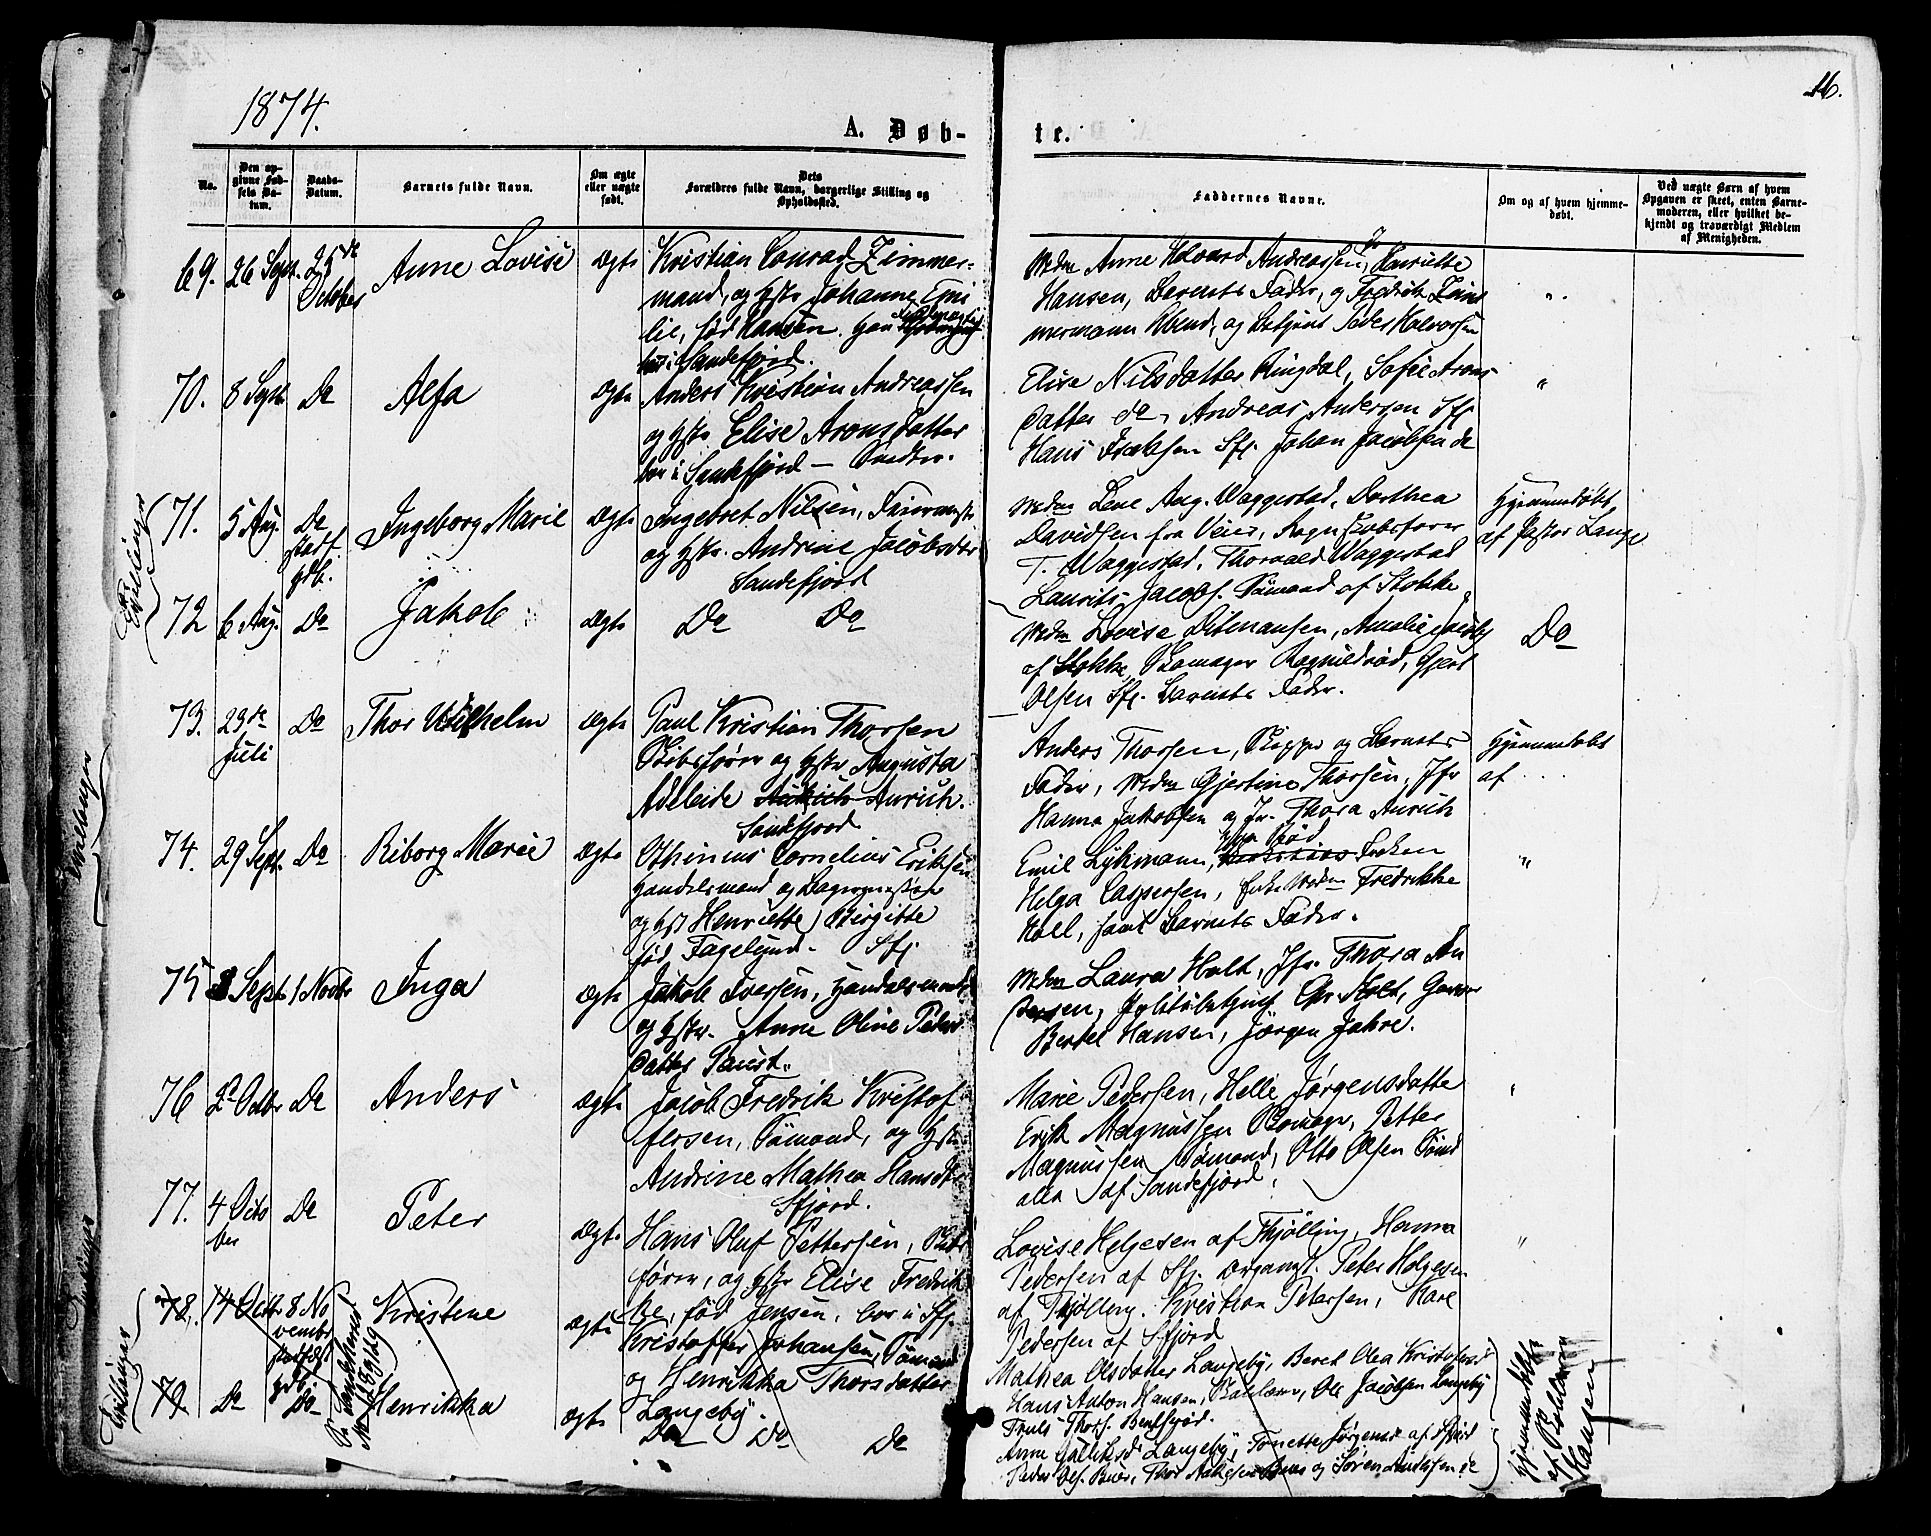 1874.
16.
A. Døb-
te.
No.
Den op-
givne Fød-
sels Da-
tum.
Daabs-
Datum.
Barnets fulde Navn.
Om ægte
eller uægte
født.
Dets
Forældres fulde Navn, borgerlige Stilling og
Opholdssted.
Faddernes Navne.
Om og af hvem hjemme-
døbt.
Ved uægte Børn af hvem
Opgaven er skeet, enten Barne-
moderen, eller hvilket be-
kjendt og troværdigt Medlem
af Menigheden.
69. 26 Sept. 25de
October
Anne Lovise
Ægte
Kristian Conrad Zimmer-
mand, og Hstr Johanne Emi
lie, fød Hansen.
bor i Sandefjord.
Mdm Anne Halvard Andreassen, Jfr Henriette
Hansen, Barnets Fader, og Fredrik Zim
mermann og Betjent Peder Halvorsen
"
70. 8 Sept. Do
Alfa
Ægte
Anders Kristian Andreassen
og Hstr Elise Aronsdatter
bor i Sandefjord
Elise Nilsdatter Ringdal, Sofie Arons
datter do, Andreas Andersen Sfj.
Hans Isaksen Sfj. Johan Jacobsen do
"
Tvillinger
71. 5 Aug. Do
stadf.
hdb.
Ingeborg Marie
Ægte
Ingebret Nilsen,
og Hstr. Andrine Jacobsdtr
Sandefjord
Mdm Lene Aug. Waggestad, Dorthea
Davidsen fra Veier, Skibsfører
T. Waggestad, Thorvald Waggestad
Laurits Jacobs. Sømand af Stokke
Hjemmedøbt
af Pastor Lange
72 6 Aug. Do
Jakob
Ægte
Do Do
Mdm Lovise Ditmansen, Amalie
af Stokke, Skomager Ragnildrød, Gjert
Olsen Sfj. Barnets Fader.
Do
73. 23de
Juli
Do
Thor Wilhelm
Ægte
Paul Kristian Thorsen
Skibsfører og Hstr Augusta
Adeleide Aurich.
Sandefjord
Anders Thorsen, Skipper og Barnets
Fader, Mdm Gjertine Thorsen, Jfr
Hanna Jakobsen og Jfr. Thora Aurich
Hjemmedøbt
af ....
74. 29 Sept. Do
Riborg Marie
Ægte
Othinius Cornelius Eriksen
Handelsmand og
og Hstr Henriette Birgitte
fød Fagelund. Sfj.
Emil Lykmann, Frøken
Helga Caspersen, Mdm Fredrikke
Holl, samt Barnets Fader.
"
75 8 Sept 1 Novbr
Inga
Ægte
Jakob Iversen, Handelsmand
og Hstr. Anne Oline Peder
datter
Mdm Laura Holt, Jfr. Thora An
dersen, Politibetjent Chr Holt, Garver
Bertel Hansen, Jørgen Jahre.
76 2d Octbr Do
Anders
Ægte
Jacob Fredrik Kristof
fersen, Sømand, og Hstr
Andrine Mathea Hansdtr
Sfjord.
Marie Pedersen, Helle Jørgensdatter
Erik Magnussen Skomager, Petter
Magnussen Sømand, Otto Olsen Sømd
alle af Sandefjord.
77. 4 Octo
ber
Do
Peter
Ægte
Hans Oluf Pettersen, Skibs
fører, og Hstr Elise Fredrik
ke, fød Jensen, bor i Sfj.
Lovise Helgesen af Thjølling, Hanna
Pedersen af Sfj. Organist. Peter Holgesen
af Thjølling. Kristian Petersen, Kare
Pedersen af Sfjord
"
Tvillinger
78. 14 Octbr 8 No
vembr
stadfæst
hdb.
Kristene
Ægte
Kristoffer Johansen, Sømand
og Henrikka Thorsdatter
Langeby.
Mathea Olsdatter Langeby, Beret Olea Kristofersd
Hans Anton Hansen, Ole Jacobsen Langeby
Truls Thors.
79 Do Do
Henrikka
Ægte
Do Do Do
Anne Langeby, Tonette Jørgensd af Sfjord
Peder Ols. Buer, Thor og Søren Andersen do
Hjemmedøbt
Hansen